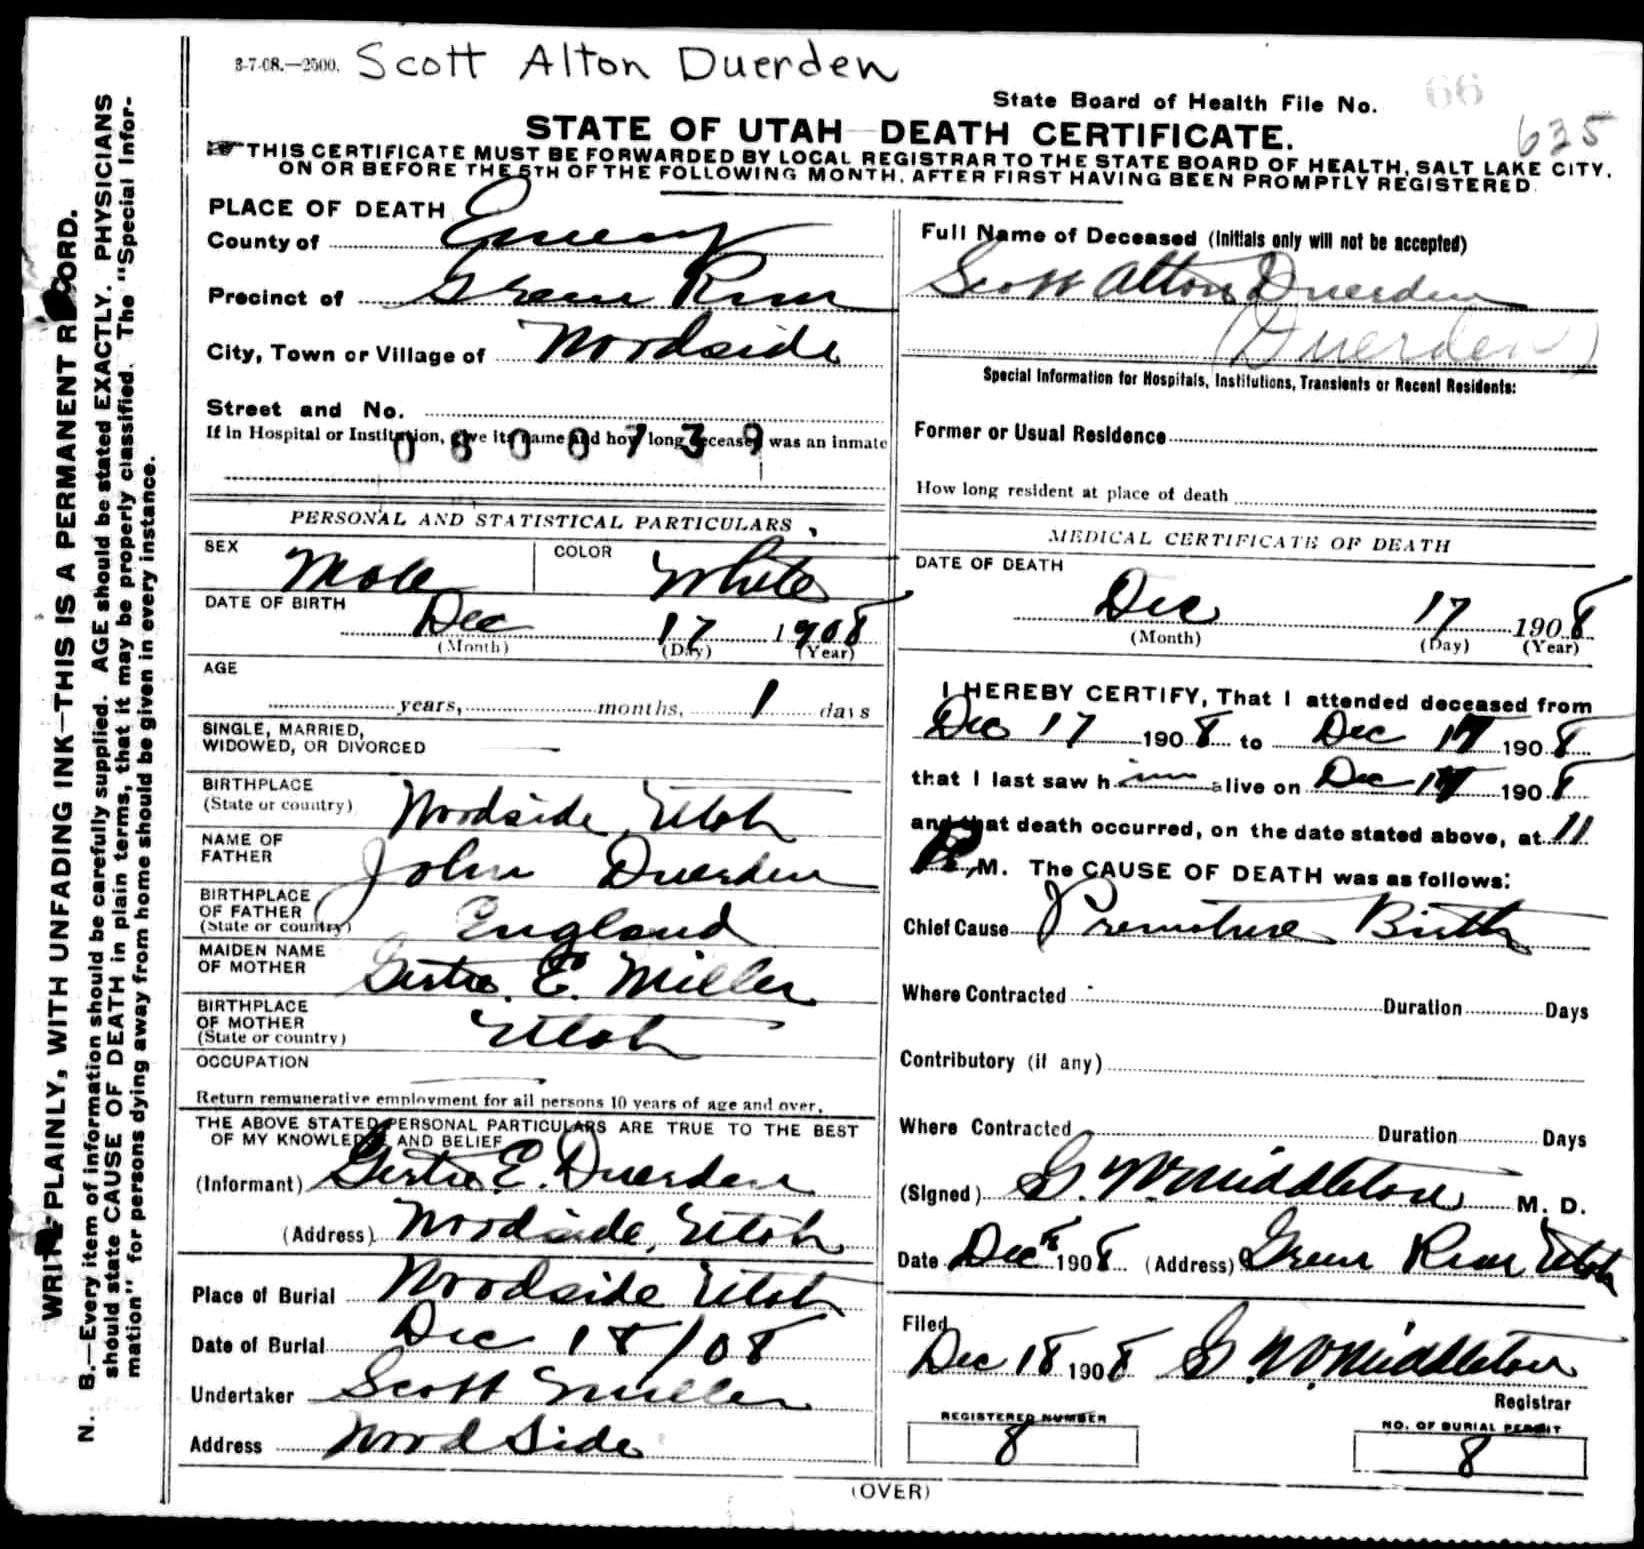 3-7-08.—2500. Scott Alton Duerden
State Board of Health File No. 66
635
STATE OF UTAH DEATH CERTIFICATE.
THIS CERTIFICATE MUST BE FORWARDED BY LOCAL REGISTRAR TO THE STATE BOARD OF HEALTH, SALT LAKE CITY,
ON OR BEFORE THE 5TH OF THE FOLLOWING MONTH, AFTER FIRST HAVING BEEN PROMPTLY REGISTERED.
WRITE PLAINLY, WITH UNFADING INK—THIS IS A PERMANENT RECORD.
N. B.—Every item of information should be carefully supplied. AGE should be stated EXACTLY. PHYSICIANS
should state CAUSE OF DEATH in plain terms, that it may be properly classified. The "Special Infor-
mation" for persons dying away from home should be given in every instance.
PLACE OF DEATH
County of Emery
Precinct of Green River
City, Town or Village of Woodside
Street and No.
If in Hospital or Institution, give its name and how long deceased was an inmate
0800739
PERSONAL AND STATISTICAL PARTICULARS
SEX Male COLOR White
DATE OF BIRTH Dec 17 1908
(Month) (Day) (Year)
AGE
years, months, 1 days
SINGLE, MARRIED,
WIDOWED, OR DIVORCED
BIRTHPLACE
(State or country) Woodside, Utah
NAME OF
FATHER John Duerden
BIRTHPLACE
OF FATHER
(State or country) England
MAIDEN NAME
OF MOTHER Gertie E. Miller
BIRTHPLACE
OF MOTHER
(State or country) Utah
OCCUPATION
Return remunerative employment for all persons 10 years of age and over.
THE ABOVE STATED PERSONAL PARTICULARS ARE TRUE TO THE BEST
OF MY KNOWLEDGE AND BELIEF
(Informant) Gertie E. Duerden
(Address) Woodside, Utah
Place of Burial Woodside Utah
Date of Burial Dec 18/08
Undertaker Scott Miller
Address Woodside
Full Name of Deceased (Initials only will not be accepted)
Scott Alton Duerden
(Duerden)
Special Information for Hospitals, Institutions, Transients or Recent Residents:
Former or Usual Residence
How long resident at place of death
MEDICAL CERTIFICATE OF DEATH
DATE OF DEATH
Dec 17 1908
(Month) (Day) (Year)
I HEREBY CERTIFY, That I attended deceased from
Dec 17 1908 to Dec 17 1908
that I last saw him alive on Dec 17 1908
and that death occurred, on the date stated above, at 11
P.M. The CAUSE OF DEATH was as follows:
Chief Cause Premature Birth
Where Contracted Duration Days
Contributory (if any)
Where Contracted Duration Days
(Signed) G. W. Middleton M. D.
Date Dec 1908 (Address) Green River Utah
Filed
Dec 18 1908 G. W. Middleton
Registrar
REGISTERED NUMBER
8
NO. OF BURIAL PERMIT
8
(OVER)